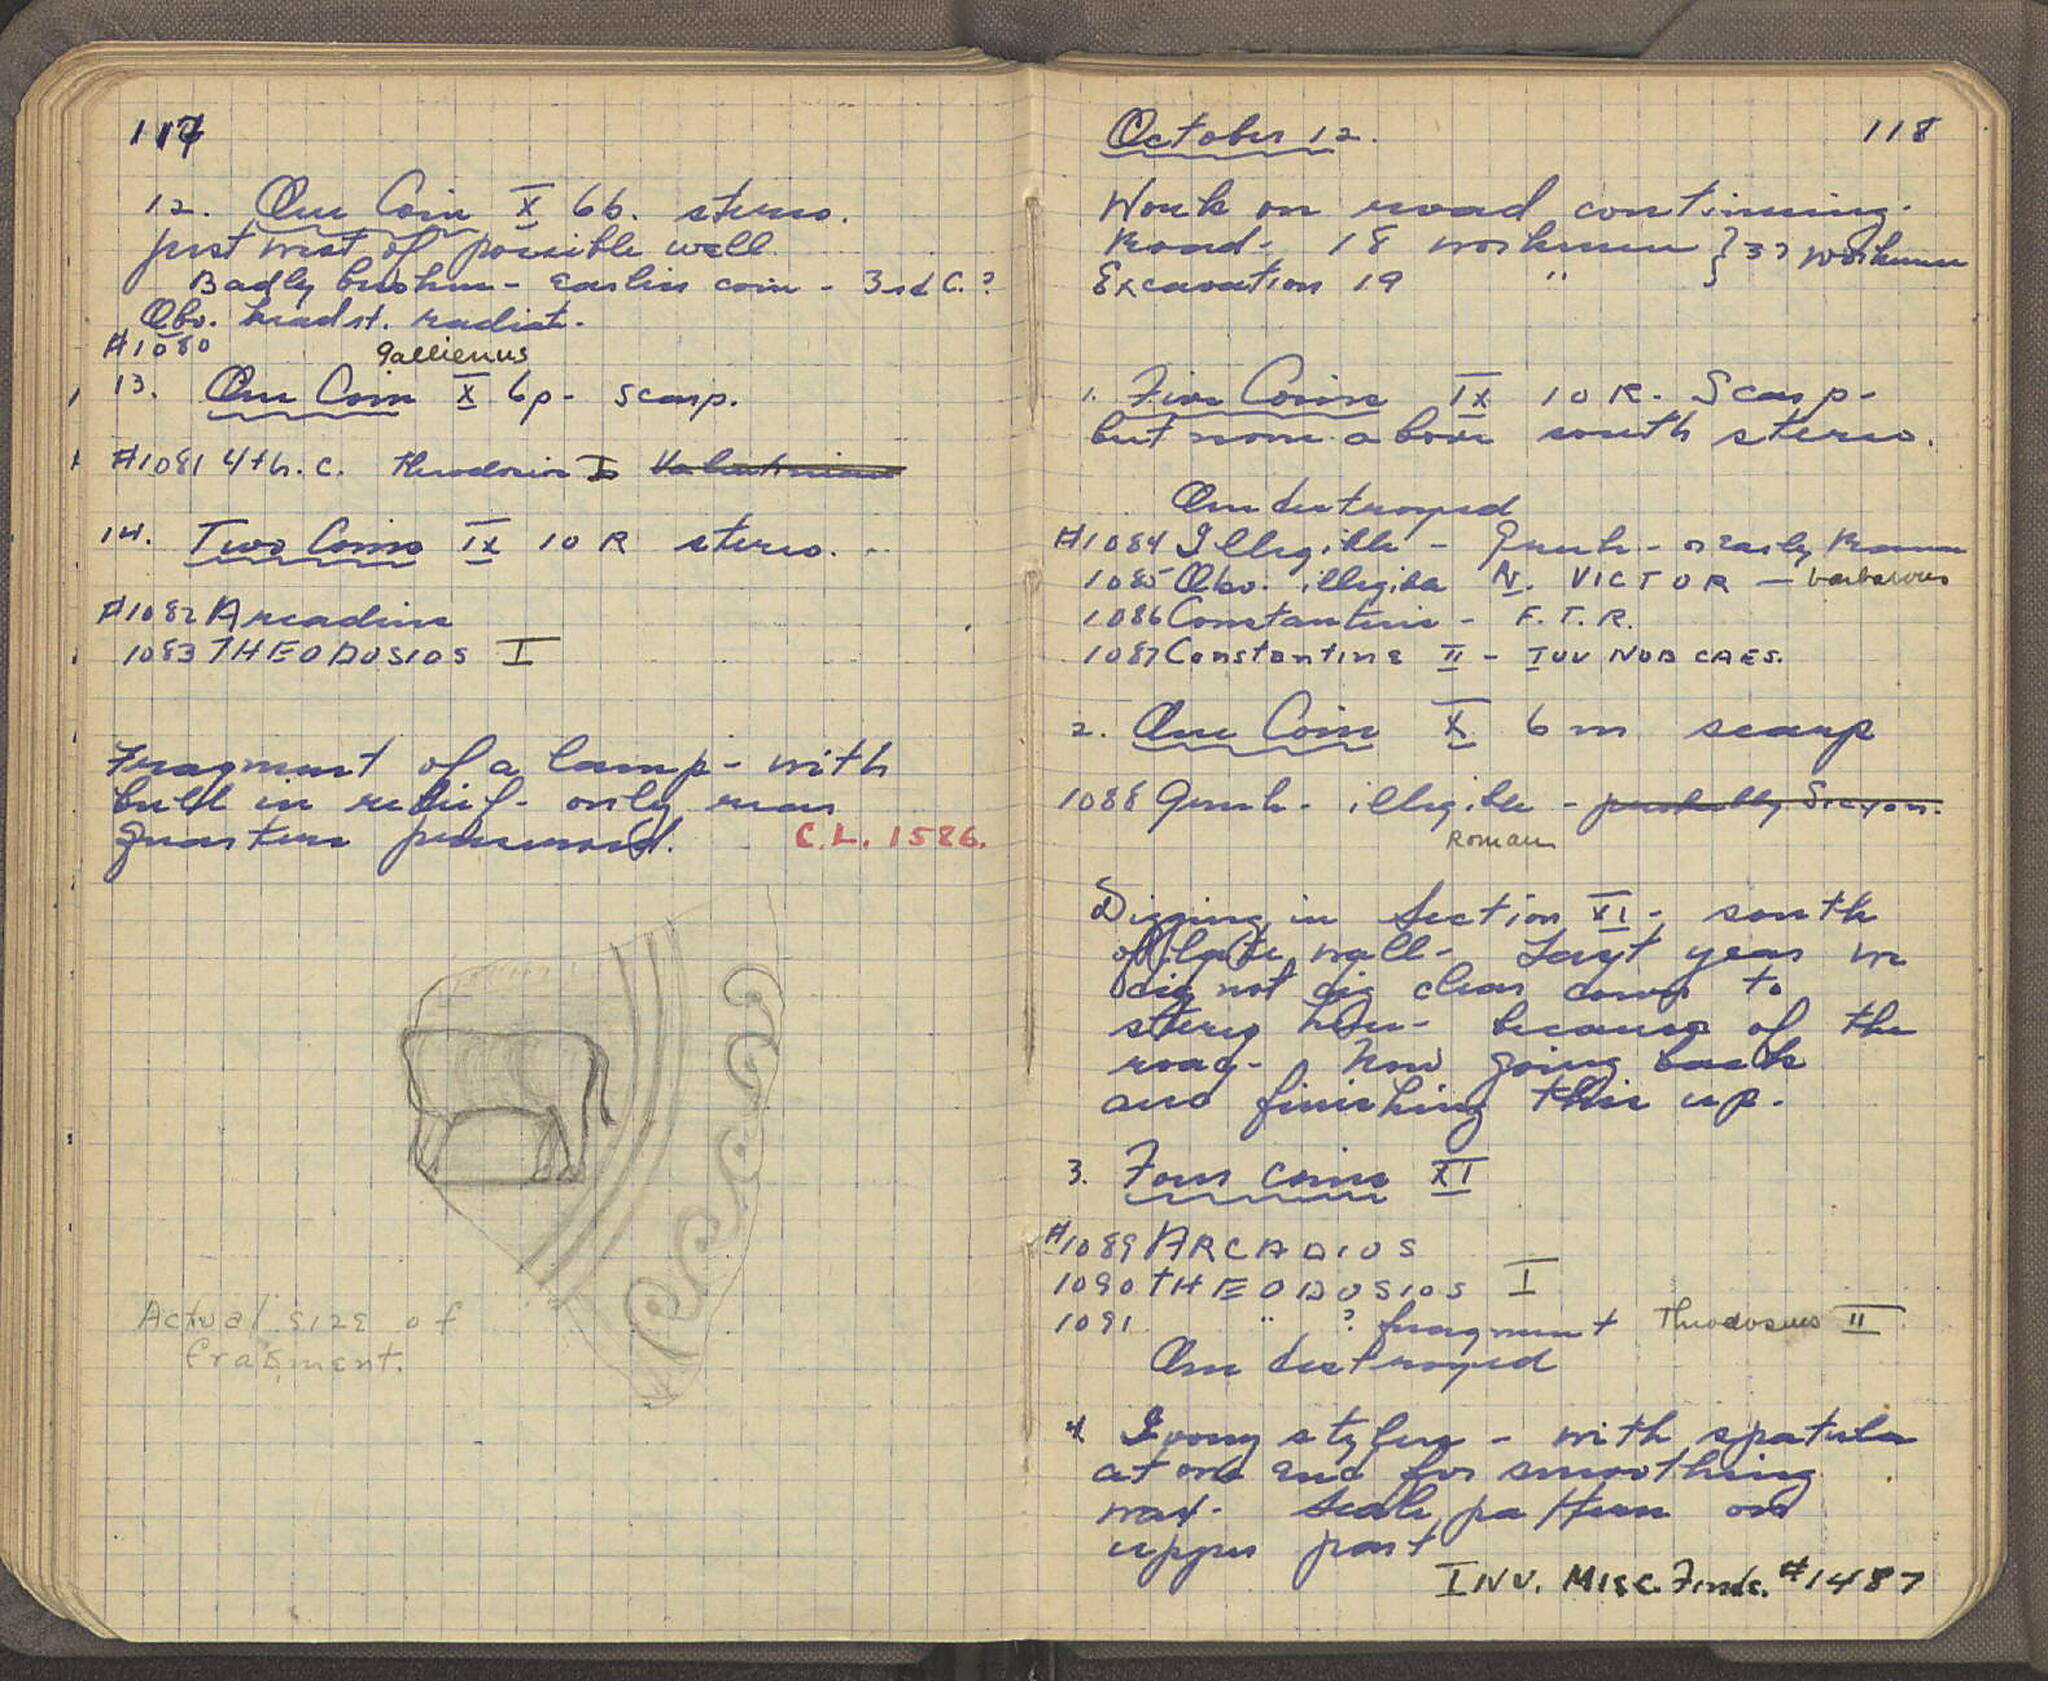 117
12. One Coin X 6b. stereo.
just west of possible well
Badly broken - Earlier coin - 3rd C.?
Obv. head rt. radiate.
#1080
Gallienus
13. One Coin X 6p - scarp.
#1081 4th. C. Theodosius I Valentinian
14. Two Coins IX 10 R stereo. -
#1082 Arcadius
1083 THEODOSIOS I
Fragment of a lamp - with
bull in relief - only rear
quarters preserved. C.L. 1586.
Actual size of
fragment.
October 12. 118
Work on road continuing.
Road - 18 workmen } 37 workmen
Excavation 19 "
1. Five Coins IX 10 R - Scarp -
but none above south stereo.
One destroyed
#1084 Illegible - Greek - or Early Roman
1085 Obv. illegible R. VICTOR - barbarous
1086 Constantius - F.T.R.
1087 Constantine II - IUU NOB CAES.
2. One Coin X 6 m scarp
1088 Greek - illegible - probably Sicyon.
Roman
Digging in Section XI - south
of late wall - Last year we
did not dig clear down to
stereo here - because of the
road - Now going back
and finishing this up.
3. Four coins XI
#1089 ARCADIOS
1090 THEODOSIOS I
1091 " ? fragment Theodosius II
One destroyed
4 Ivory stylus - with spatula
at one end for smoothing
wax - Scale pattern on
upper part
INV. MISC. Finds. #1487